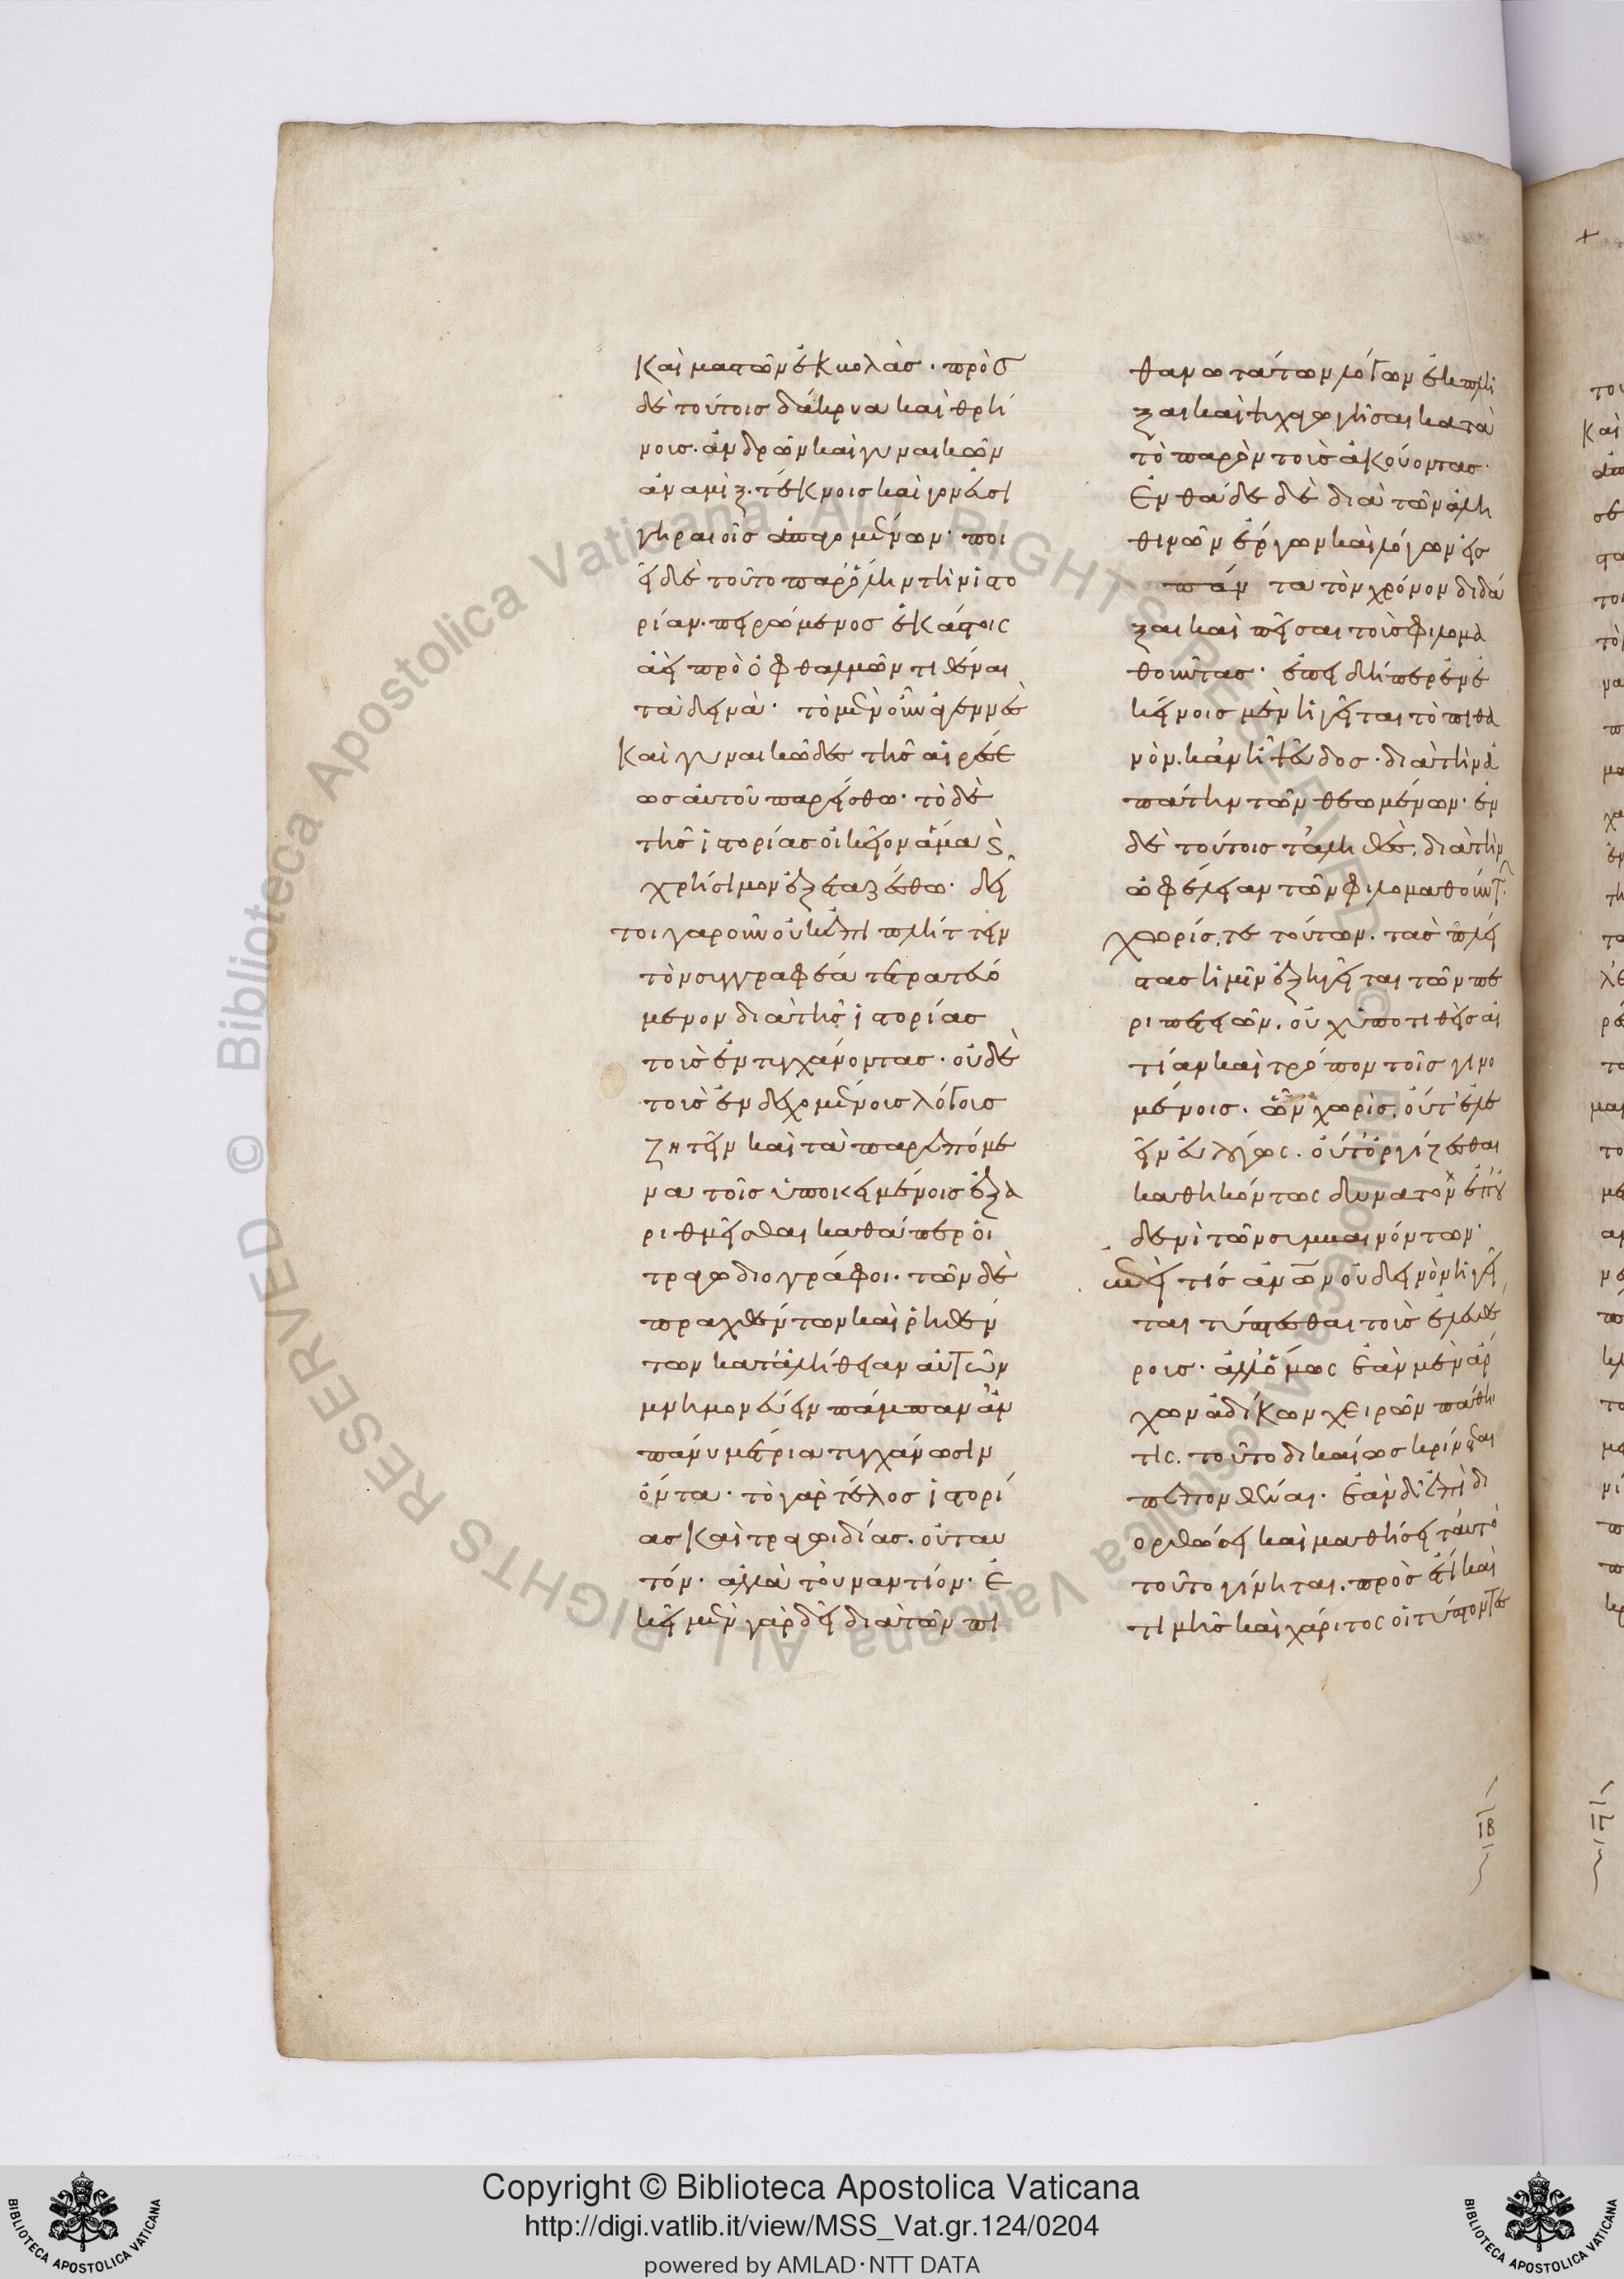 καὶ μαστῶν ἐκβολὰς· πρὸς
δὲ τούτοις δάκρυα καὶ θρή
νους ἀνδρῶν καὶ γυναικῶν
ἀναμὶξ τέκνοις καὶ γονεῦσι
γηραιοῖς ἀπαγομένων· ποι
εῖ δὲ τοῦτο παρόλην τὴν ἱστο
ρίαν· πειρώμενος ἑκάστοις
ἀεὶ πρὸ ὀφθαλμῶν τιθέναι
τὰ δεινά· τὸ μὲν οὖν ἀγεννὲς
καὶ γυναικῶδες τῆς αἱρέσε
ως αὐτοῦ παρείσθω· τὸ δὲ
τῆς ἱστορίας οἰκεῖον ἅμα καὶ
χρήσιμον ἐξεταζέσθω· δεῖ
τοιγαροῦν οὐκ ἐπιπλήττειν
τὸν συγγραφέα τερατευό
μενον διὰ τῆς ἱστορίας
τοὺς ἐντυγχάνοντας· οὐδὲ
τοὺς ἐνδεχομένους λόγους
ζητεῖν καὶ τὰ παρεπόμε
να τοῖς ὑποκειμένοις ἐξα
ριθμεῖσθαι καθάπερ οἱ
τραγῳδιογράφοι· τῶν δὲ
πραχθέντων καὶ ῥηθέν
των κατ' ἀλήθειαν αὐτῶν
μνημονεύειν πάμπαν ἂν
πάνυ μέτρια τυγχάνωσιν
ὄντα· τὸ γὰρ τέλος ἱστορί
ας καὶ τραγῳδίας· οὐ ταυ
τόν· ἀλλὰ τοὐναντίον· ἐ
κεῖ μὲν γὰρ δεῖ διὰ τῶν πι
θανωτάτων λόγων ἐκπλῆ
ξαι καὶ ψυχαγωγῆσαι κατὰ
τὸ παρὸν τοὺς ἀκούοντας·
ἐνθάδε δὲ διὰ τῶν ἀλη
θινῶν ἔργων καὶ λόγων εἰς
πάντα τὸν χρόνον διδά
ξαι καὶ πεῖσαι τοὺς φιλομα
θοῦντας· ἐπειδήπερ ἐν ἐ
κείνοις μὲν ἡγεῖται τὸ πιθα
νόν· κἂν ᾖ ψεῦδος· διὰ τὴν ἀ
πάτην τῶν θεωμένων· ἐν
δὲ τούτοις τἀληθὲς· διὰ τὴν
ὠφέλειαν τῶν φιλομαθούντ
χωρίς τε τούτων· τὰς πλεί
στας ἡμῖν ἐξηγεῖται τῶν πε
ριπετειῶν· οὐχ ὑποτιθεὶς αἰ
τίαν καὶ τρόπον τοῖς γινο
μένοις· ὧν χωρὶς· οὔτ' ἐλε
εῖν εὐλόγως· οὔτ' ὀργίζεσθαι
καθηκόντως δυνατὸν ἐπ' οὐ
δενὶ τῶν συμβαινόντων·
ἐπεὶ τίς ἀν\u03bfν οὐ δεινὸν ἡγεῖ
ται τύπτεσθαι τοὺς ἐλευθέ
ρους· ἀλλ' ὅμως ἐὰν μὲν ἄρ
χων ἀδίκων χειρῶν πάθῃ
τις· τοῦτο δικαίως κρίνεται
πεπονθέναι· ἐὰν δ' ἐπὶ δι
ορθώσει καὶ μαθήσει ταὐτὸ
τοῦτο γίνηται· πρὸς ἔτι καὶ
τιμῆς καὶ χάριτος οἱ τύπτοντε
ιβ
Copyright © Biblioteca Apostolica Vaticana
http://digi.vatlib.it/view/MSS_Vat.gr.124/0204
powered by AMLAD·NTT DATA
BIBLIOTECA APOSTOLICA VATICANA
BIBLIOTECA APOSTOLICA VATICANA
© Biblioteca Apostolica Vaticana ALL RIGHTS RESERVED
© Biblioteca Apostolica Vaticana ALL RIGHTS RESERVED